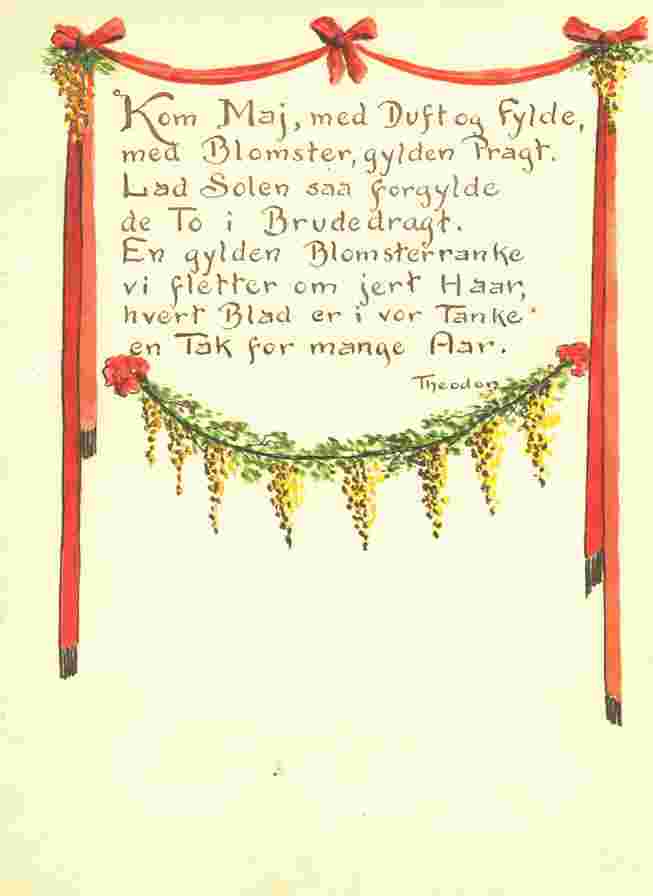 Kom Maj, med Duft og Fylde,
med Blomster, gylden Pragt.
Lad Solen saa forgylde
de To i Brudedragt.
En gylden Blomsterranke
vi fletter om jert Haar,
hvert Blad er i vor Tanke
en Tak for mange Aar.
Theodor